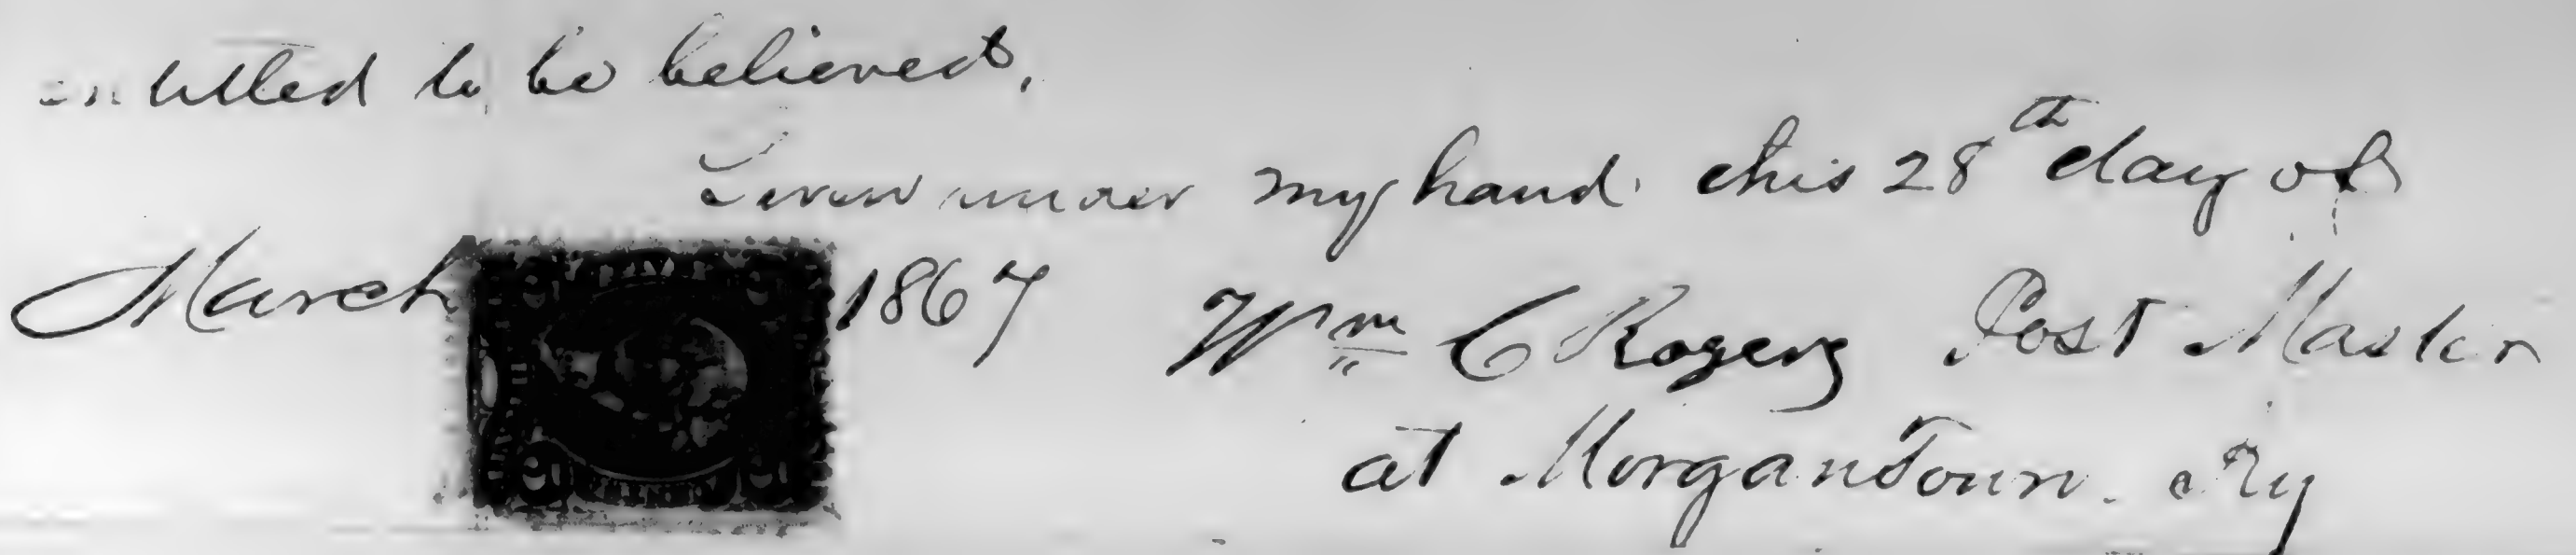 entitled to be believed.
Given under my hand this 28th day of
March 1867 Wm C Rogers Post Master
at Morgantown Ky